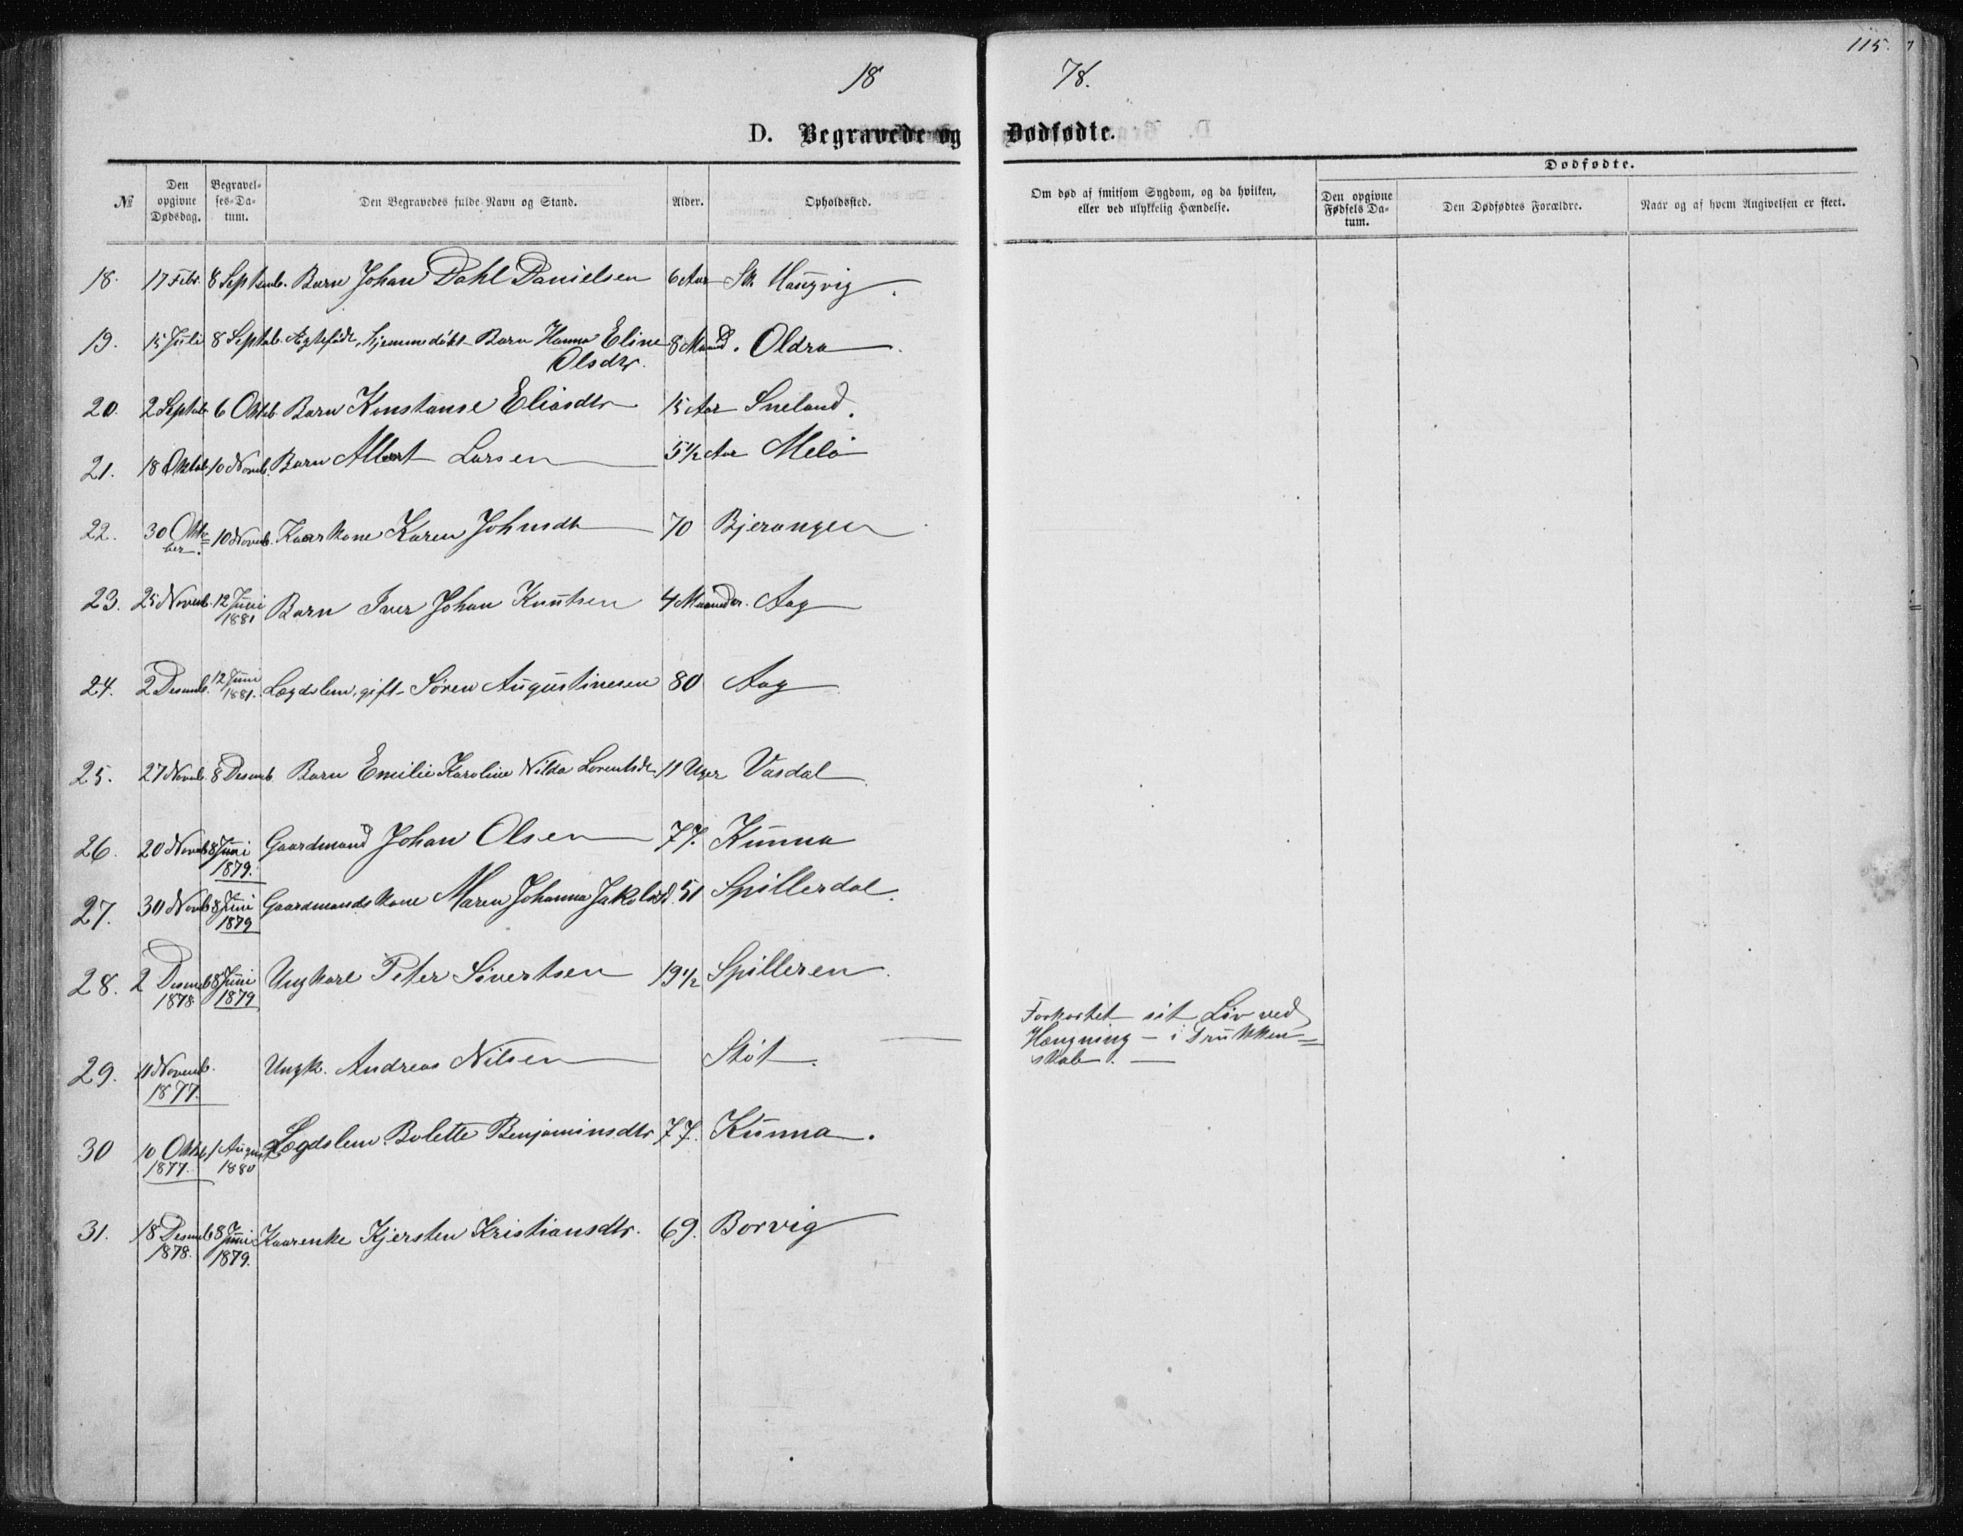 115.
18 78.
D. Begravede og Dødfødte.
№
Den opgivne Dødsdag.
Begravelses-Datum.
Den Begravedes fulde Navn og Stand.
Alder.
Opholdssted.
Om død af smitsom Sygdom, og da hvilken, eller ved ulykkelig Hændelse.
Dødfødte.
Den opgivne Fødsels Datum.
Den Dødfødtes Forældre.
Naar og af hvem Angivelsen er skeet.
18. 17 Febr. 8 Septemb. Barn Johan Dahl Danielsen 6 Aar St. Haugvig.
19. 15 Juli 8 Septbr. Ægtefødt, hjemmedøbt Barn Hanna Eline 8 Maand. Oldra
Olsdtr.
20. 2 Septbr. 6 Oktb Barn Konstanse Eliasdtr 15 Aar Sneland.
21. 18 Oktob 10 Novb. Barn Albert Larsen 5 1/2 Aar Melø
22. 30 Okto= 10 Novemb. Kaarkone Karen Johnsdtr 70 Bjerangen
ber.
23. 25 Novemb. 12 Juni Barn Iver Johan Knutsen 4 Maaneder. Aag
1881
24. 2 Desemb. 12 Juni Lægdslem, gift Søren Augustinesen 80 Aag
1881.
25. 27 Novb. 8 Desemb. Barn Emilie Karoline Nilda Lorentsdtr 11 Uger Vasdal
26. 20 Novb 8 Juni Gaardmand Johan Olsen 77. Kunna
1879.
27. 30 Novb 8 Juni Gaardmandskone Maren Johanna Jakobsd. 51 Spillerdal.
1879
28. 2 Desemb 8 Juni Ungkarl Peter Sivertsen 19 1/2 Spilleren.
1878 1879
Forkortet sit Liv ved
Hængning – i Drukken=
skab. –
29. 11 Novemb. Ungk. Andreas Nilsen Støt.
1877.
30 10 Oktb 1 August Lægdslem. Bolette Benjaminsdtr 77. Kunna.
1877. 1880
31. 18 Desemb 8 Juni Kaarenke Kjersten Kristiansdtr. 69. Borvig
1878. 1879.